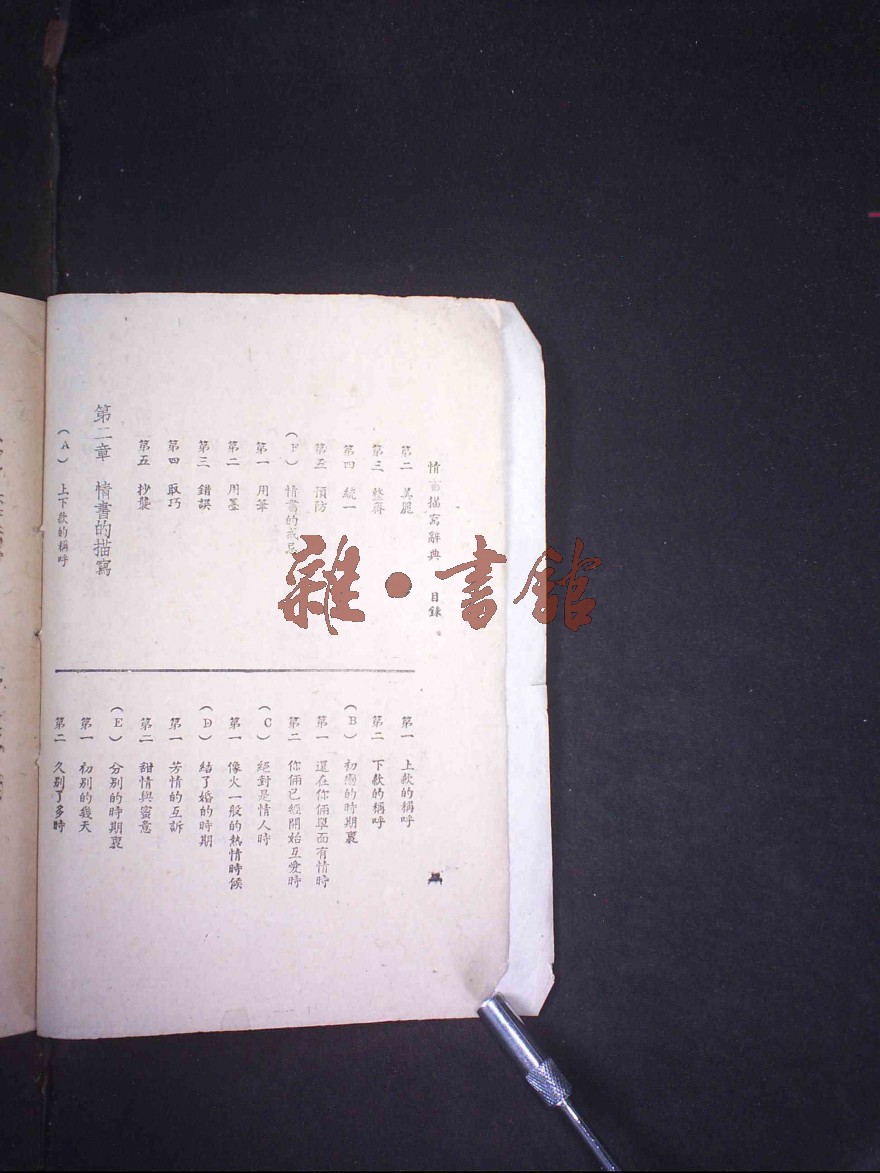 情書描寫辭典 目錄
第二 美麗
第三 整齊
第四 統一
第五 預防
(F) 情書的戒忌
第一 用筆
第二 用墨
第三 錯誤
第四 取巧
第五 抄襲
第二章 情書的描寫
(A) 上下款的稱呼
第一 上款的稱呼
第二 下款的稱呼
(B) 初戀的時期裏
第一 還在你倆單面有情時
第二 你倆已經開始互愛時
(C) 絕對是情人時
第一 像火一般的熱情時候
(D) 結了婚的時期
第一 芳情的互訴
第二 甜情與蜜意
(E) 分別的時期裏
第一 初別的幾天
第二 久別了多時
雜·書館